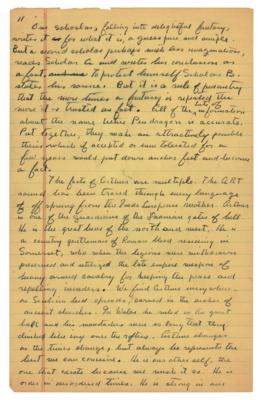 11
One scholar, falling into delightful fantasy,
writes it for what it is, a guess pure and simple.
But a second scholar perhaps with less imagination,
reads Scholar 1 and writes his conclusion as
a fact, to protect himself Scholar B
states his source. But it is a rule of pedantry
that the more times a fantasy is repeated the
more it is trusted as fact. All of the information
about the name Pendragon is accurate.
Put together, they make an attractively possible
thesis which if accepted or even tolerated for a
few years would put down anchor feet and become
a fact.
The facts of Arthur are multiple. The ART
sound has been traced through many languages
offspring from the Indo European mother. Arthur
is one of the guardians of the Taaman gates of hell.
He is the great bear of the north and west. He is
a country gentleman of Roman blood residing in
Somerset, who when the legions were withdrawn
possessed and utilized the late empire weapon of
heavy armed cavalry for keeping the peace and
repelling invaders. We find Arthur everywhere
on Scotch land epsode, carved in the arches of
ancient churches. In Wales he ruled in the great
hall and his mustaches were so long that they
climbed like ivy over the rafters. Arthur changes
as the times change, but always he represents the
best we can conceive. He is our other self, the
one that exists because we make it so. He is
order in disordered times. He is strong in our